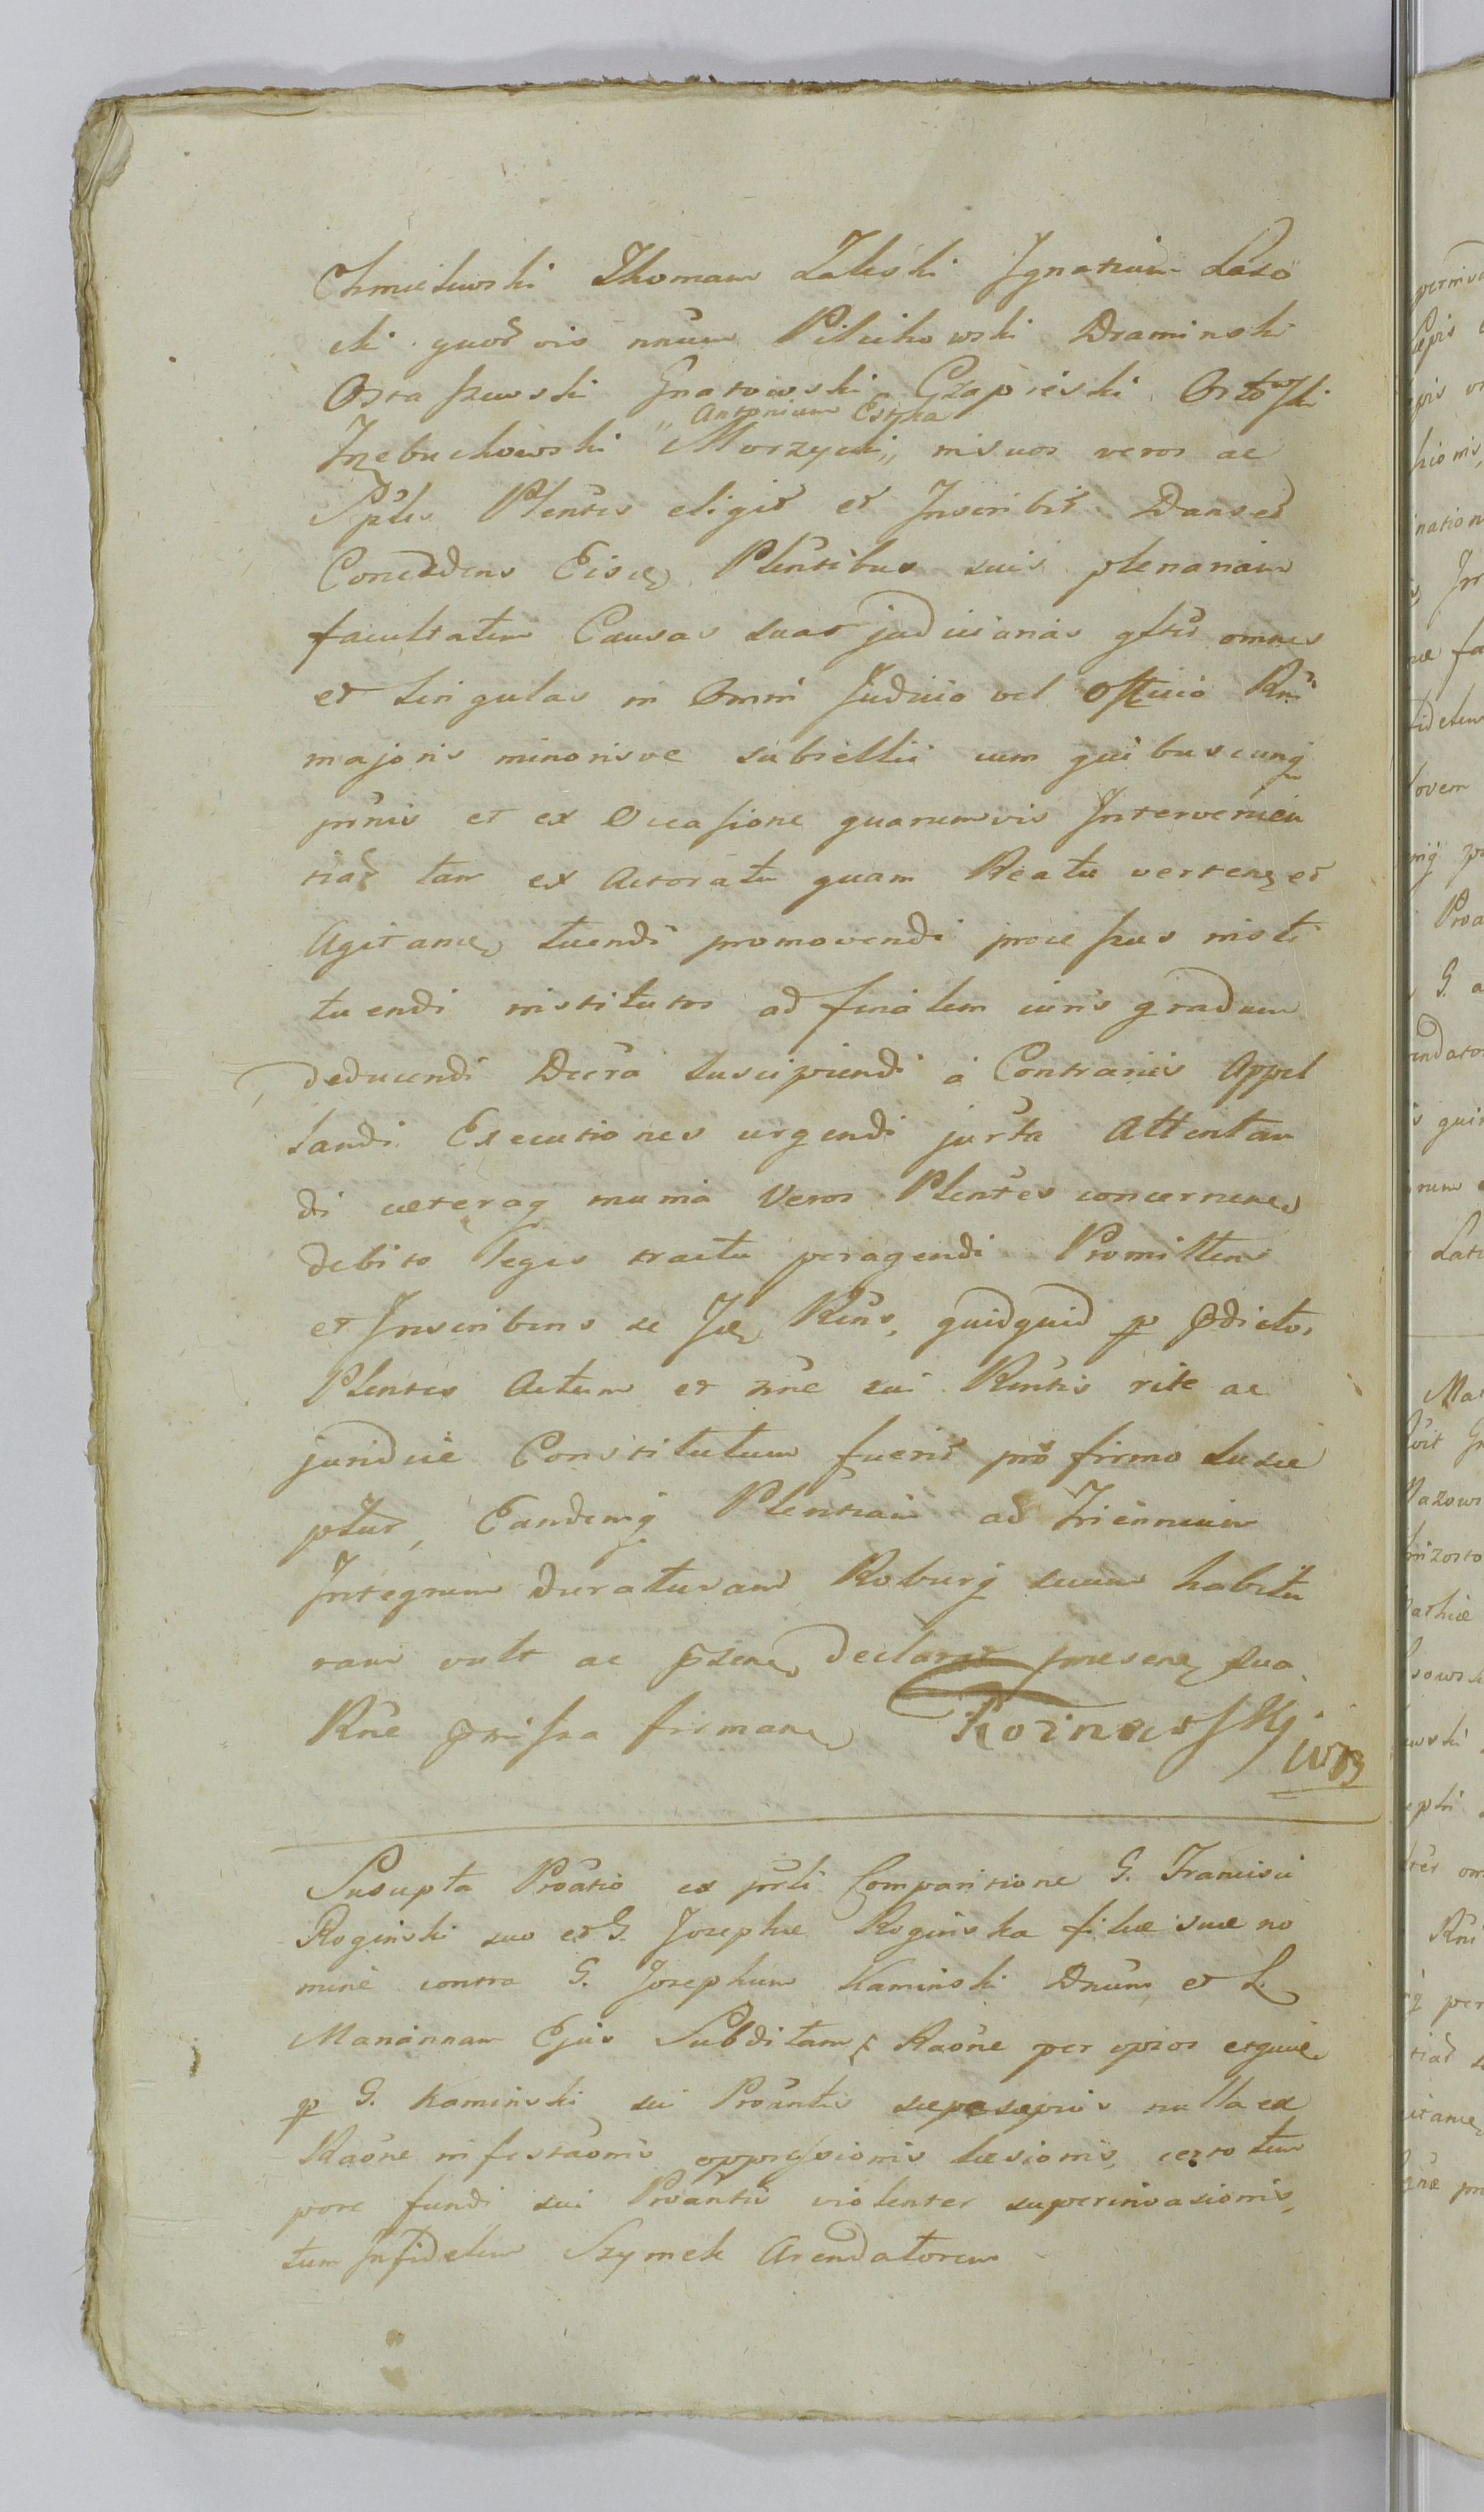 Chmielewski Thomam Zaleski Ignatium Laso
cki quosvis nnum Pilichowski Draminski
Ostaszewski Gnatowski Czapieski Orłowski
„ Antonium Estka
Trzebuchowski Morzycki „ in suos veros ac
Sples Plentes eligit et Inscribit Dans et
Concedens Eisdem Plentibus suis plenariam
facultatem Causas suas judiciarias gltes omnes
et singulas in Omni Judicio vel Officio Rni
majoris minorisve subsellii cum quibuscunq
prsnis et ex Occasione quarumvis Intervenien
tiar tam ex Actoratu quam Reatu verten et
Agitan tuendi promovendi processus insti
tuendi institutos ad finalem iuris gradum
deducendi Decra suscipiendi a Contrariis Appel
landi Executiones urgendi jurta Attentan
di ceteraq munia Veros Plentes concernen
debito legis tractu peragendi Promittens
et Inscribens se Id Rcns, quidquid p pdictos
Plentes Actum et nne sui Rcntis rite ac
juridice Constitutum fuerit pro firmo susce
ptur, Eandemq Plentiam ad Triennium
Integrum duraturam Roburq suum habitu
ram vult ac psen declarat presen sua
Rne prmissa firman
Susupta Proatio ex prli Comparitione G. Francisci
Roginski suo et G. Josephæ Roginska filiæ suæ no
mine contra G. Josephum Kaminski Dnum et L.
Mariannam Ejus Subditam Raone per ipsos
p G. Kaminski sui Proantis sæpe sæpius nulla ex
Raone infestaonis oppressionis læsionis, certo tem
pore fundi sui Proantis violenter superinvasionis,
tum Infidelem Szymek Arendatorem